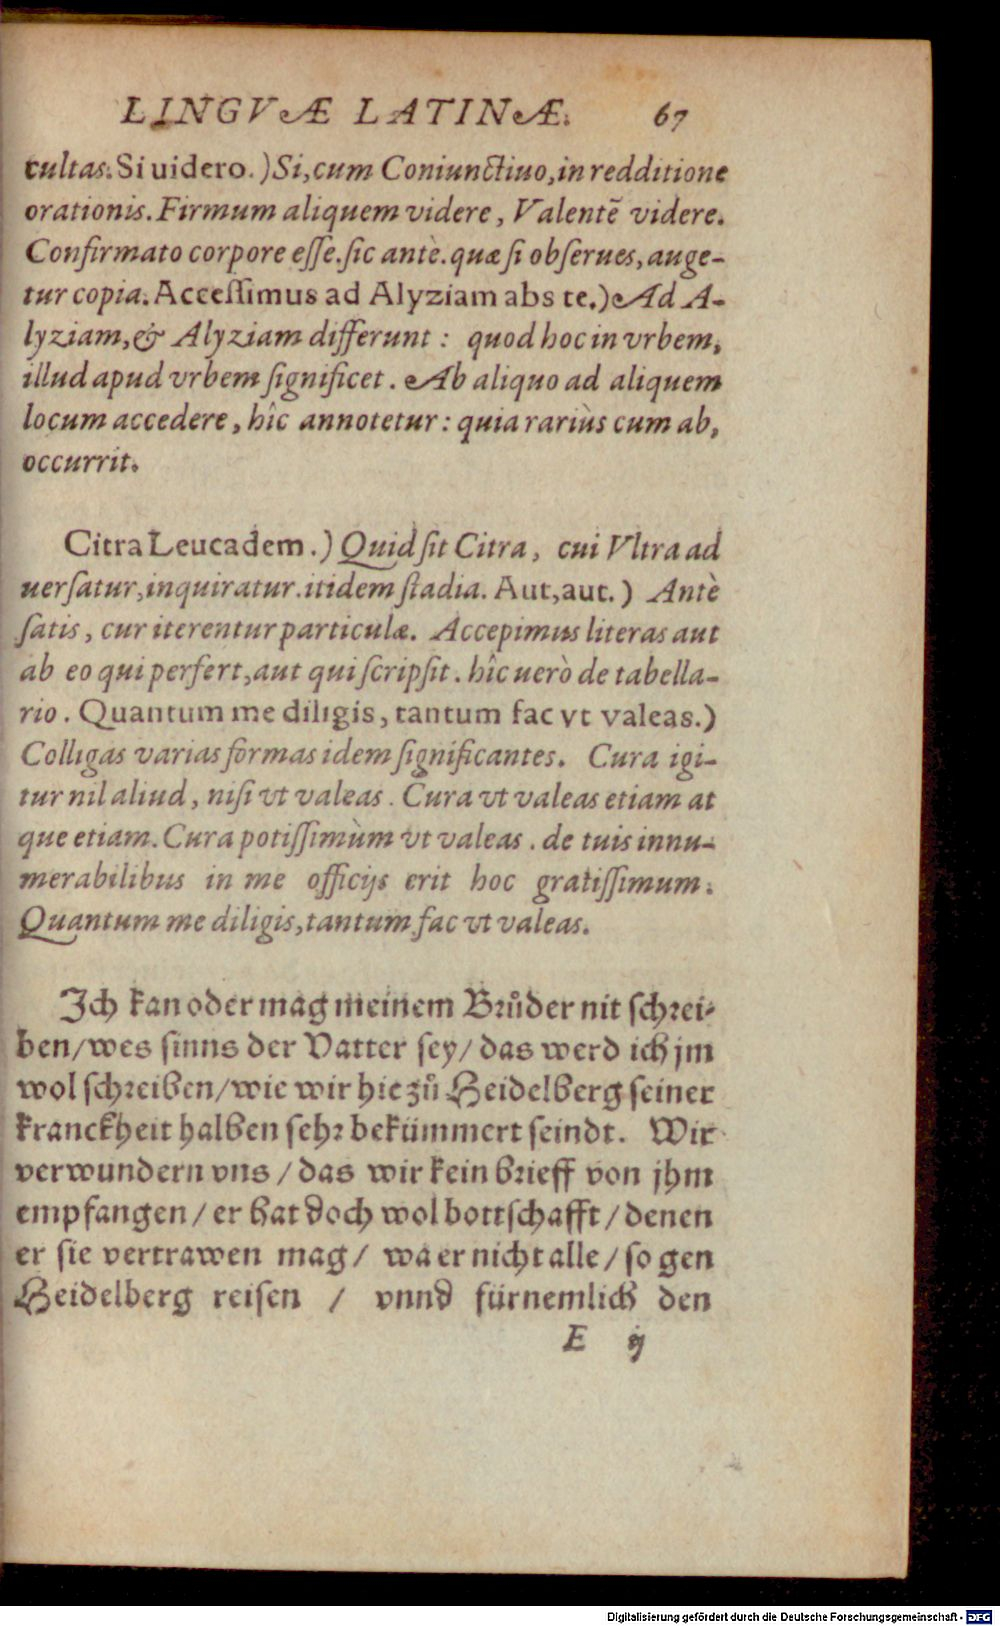 LINGVÆ LATINÆ. 67
cultas. Si uidero.) Si, cum Coniunctiuo, in redditione
orationis. Firmum aliquem videre, Valentē videre.
Confirmato corpore esse. sic antè. quæ si obserues, auge-
tur copia. Accessimus ad Alyziam abs te.) Ad A-
lyziam, & Alyziam differunt: quod hoc in vrbem,
illud apud vrbem significet. Ab aliquo ad aliquem
locum accedere, hîc annotetur: quia rariùs cum ab,
occurrit.
Citra Leucadem.) Quid sit Citra, cui Vltra ad
uersatur, inquiratur. itidem stadia. Aut, aut.) Antè
satis, cur iterentur particulæ. Accepimus literas aut
ab eo qui perfert, aut qui scripsit. hîc uerò de tabella-
rio. Quantum me diligis, tantum fac vt valeas.)
Colligas varias formas idem significantes. Cura igi-
tur nil aliud, nisi vt valeas. Cura vt valeas etiam at
que etiam. Cura potissimùm vt valeas. de tuis innu-
merabilibus in me officijs erit hoc gratissimum.
Quantum me diligis, tantum fac vt valeas.
Ich kan oder mag meinem Brůder nit schrei-
ben/ wes sinns der Vatter sey/ das werd ich jm
wol schreiben/ wie wir hie zů Heidelberg seiner
kranckheit halben sehr bekümmert seindt. Wir
verwundern vns/ das wir kein brieff von jhm
empfangen/ er hat doch wol bottschafft/ denen
er sie vertrawen mag/ wa er nicht alle/ so gen
Heidelberg reisen / vnnd fürnemlich den
E ij
Digitalisierung gefördert durch die Deutsche Forschungsgemeinschaft - DFG